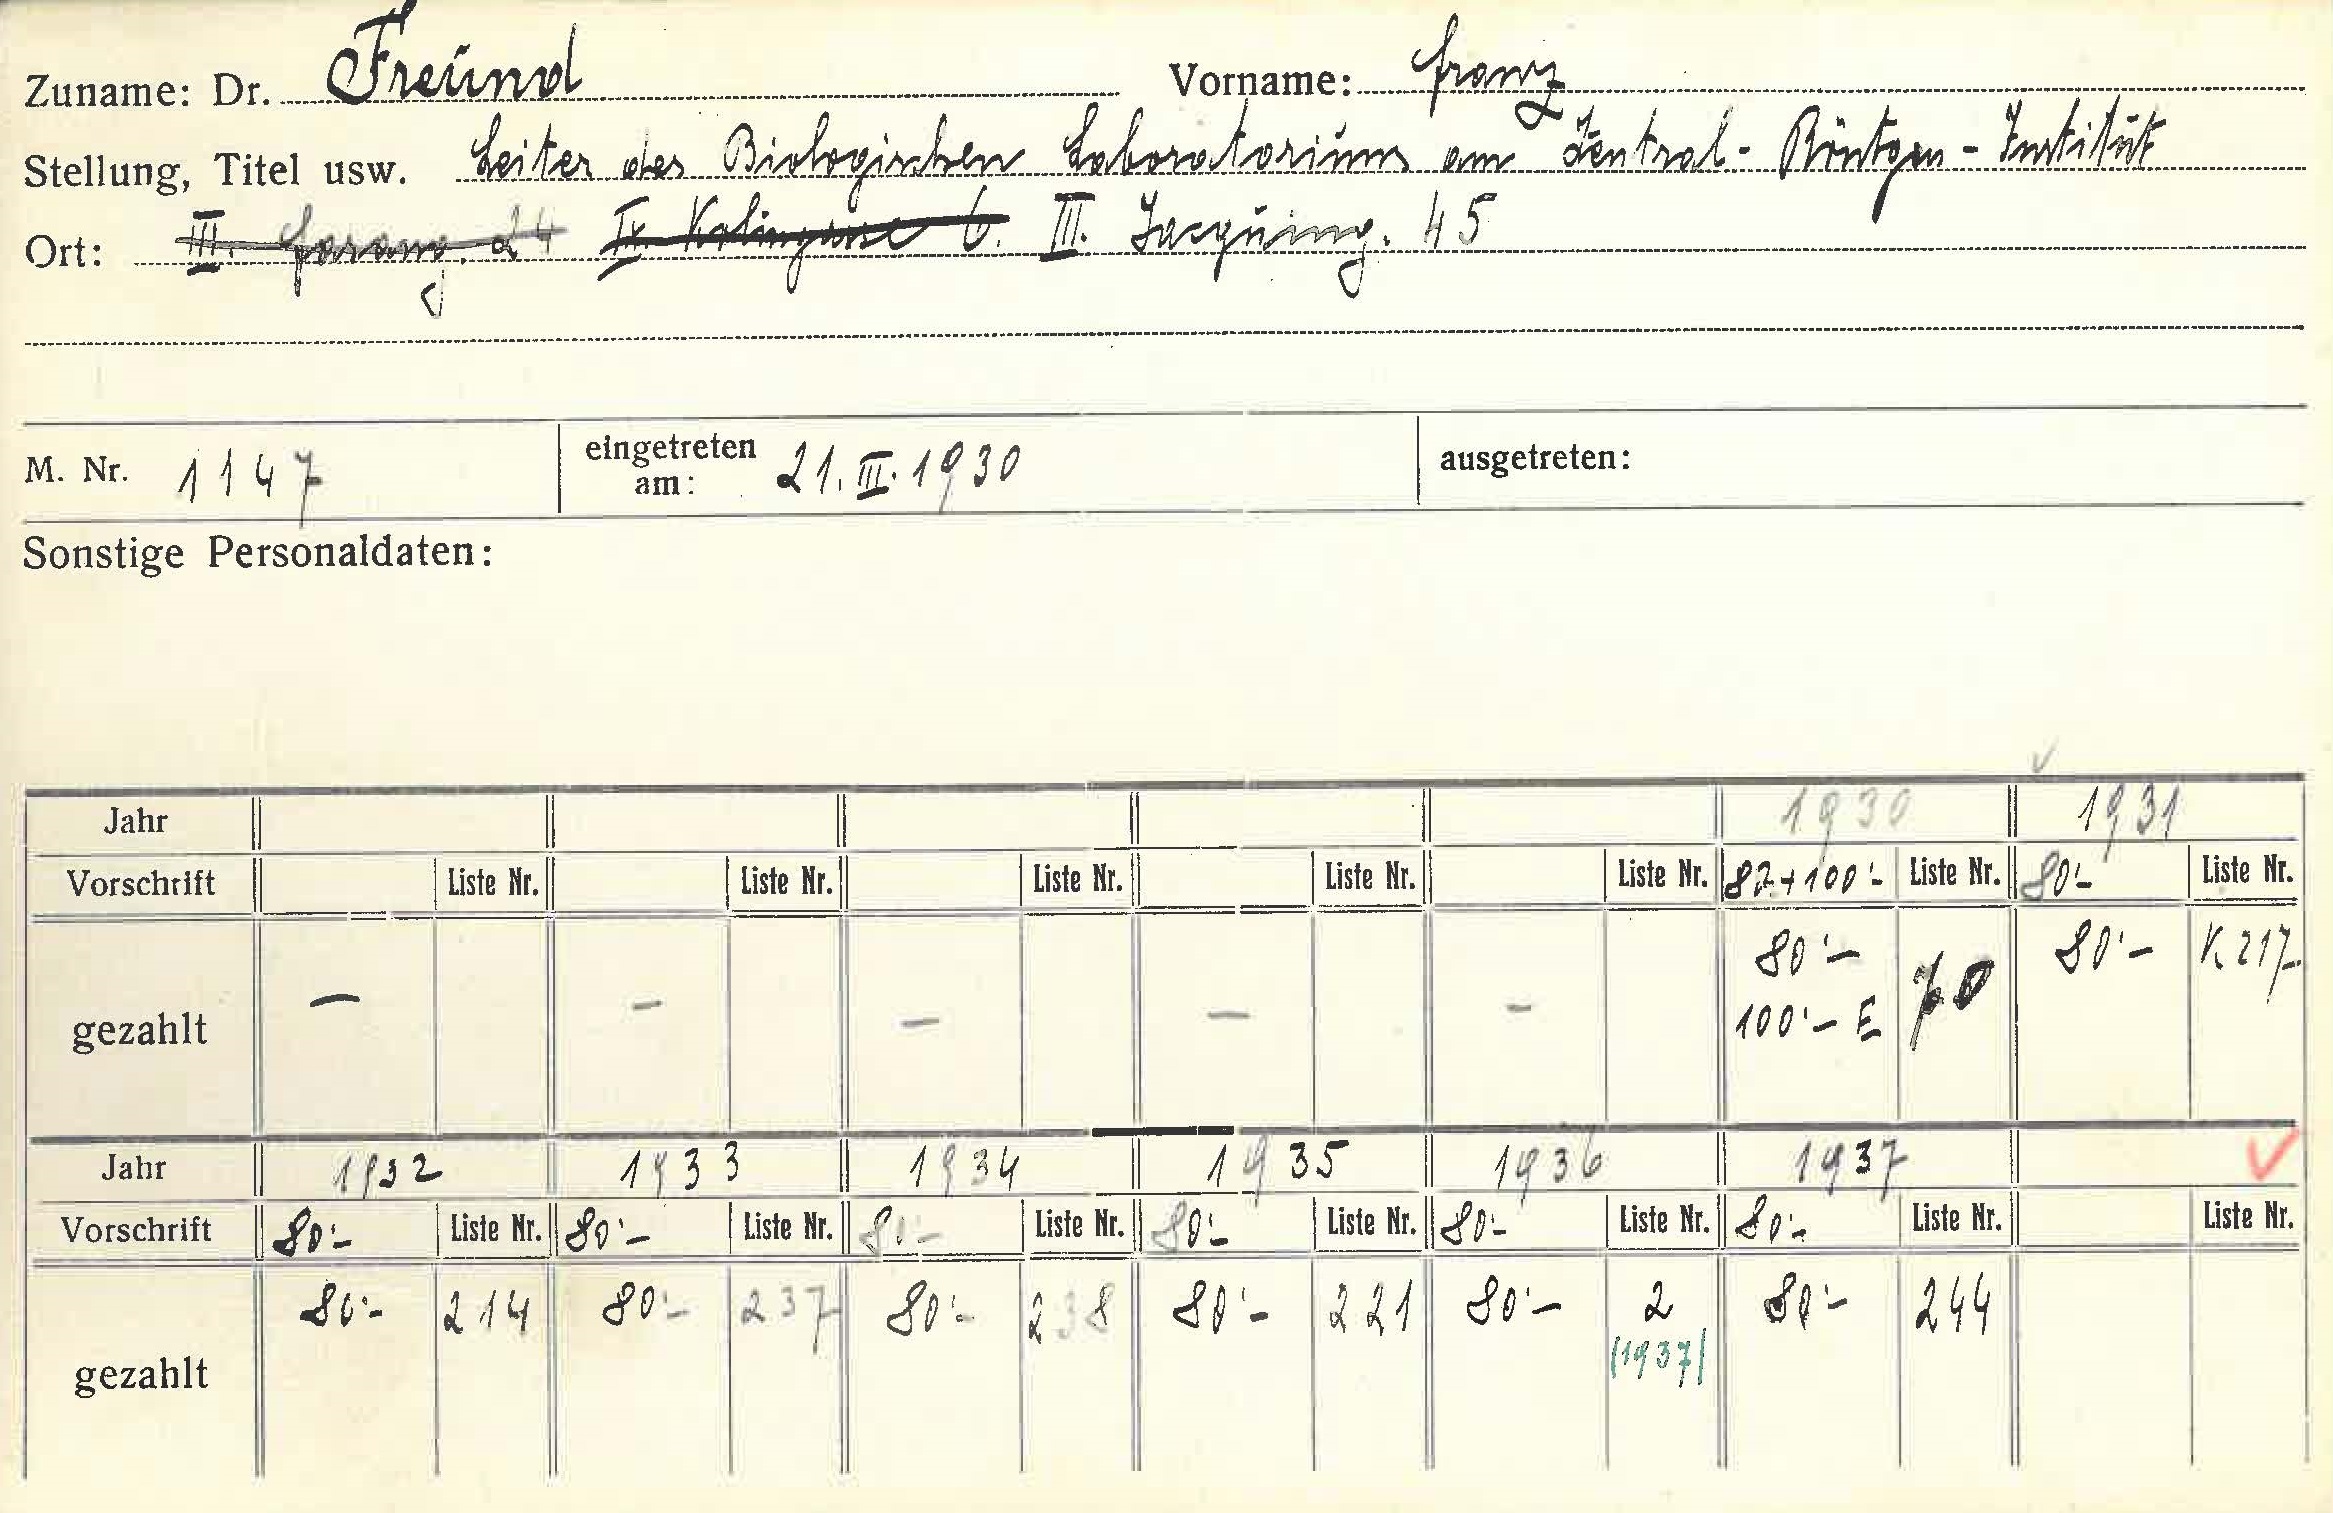 Zuname: Dr. Freund Vorname: Franz
Stellung, Titel usw. Leiter des Biologischen Laboratoriums am Zentral-Röntgen-Institut
Ort: III. 24 IX. Kolingasse 6. III. Jacquing. 45
M. Nr. 1147 eingetreten am: 21. III. 1930 ausgetreten:
Sonstige Personaldaten:
Jahr 1930 1931
Vorschrift Liste Nr. Liste Nr. Liste Nr. Liste Nr. Liste Nr. 82+100'- Liste Nr. 80'- Liste Nr.
gezahlt – – – – – 80'- 70 80'- K 217
100'- E
Jahr 1932 1933 1934 1935 1936 1937
Vorschrift 80'- Liste Nr. 80'- Liste Nr. 80'- Liste Nr. 80'- Liste Nr. 80'- Liste Nr. 80'- Liste Nr. Liste Nr.
gezahlt 80'- 214 80'- 237 80'- 238 80'- 221 80'- 2 80'- 244
(1937)